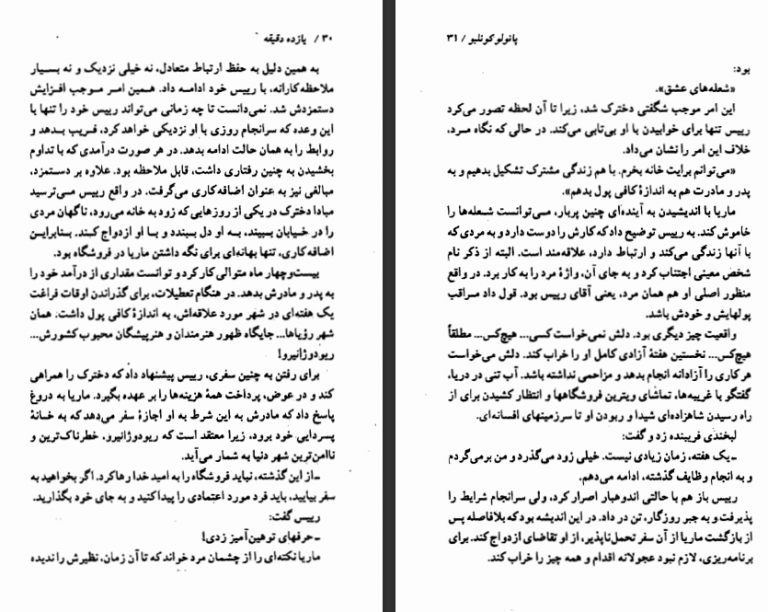 ۳۰ / یازده دقیقه
به همین دلیل به حفظ ارتباط متعادل، نه خیلی نزدیک و نه بسیار
ملاحظه‌کارانه، با رییس خود ادامه داد. همین امر موجب افزایش
دستمزدش شد. نمی‌دانست تا چه زمانی می‌تواند رییس خود را تنها با
این وعده که سرانجام روزی با او نزدیکی خواهد کرد، فریب بدهد و
روابط را به همان حالت ادامه بدهد. در هر صورت درآمدی که با تداوم
بخشیدن به چنین رفتاری داشت، قابل ملاحظه بود. علاوه بر دستمزد،
مبالغی نیز به عنوان اضافه‌کاری می‌گرفت. در واقع رییس می‌ترسید
مبادا دخترک در یکی از روزهایی که زود به خانه می‌رود، ناگهان مردی
را در خیابان ببیند، به او دل ببندد و با او ازدواج کند. بنابراین
اضافه‌کاری، تنها بهانه‌ای برای نگه داشتن ماریا در فروشگاه بود.
بیست‌وچهار ماه متوالی کار کرد و توانست مقداری از درآمد خود را
به پدر و مادرش بدهد. در هنگام تعطیلات، برای گذراندن اوقات فراغت
یک هفته‌ای در شهر مورد علاقه‌اش، به اندازۀ کافی پول داشت. همان
شهر رؤیاها... جایگاه ظهور هنرمندان و هنرپیشگان محبوب کشورش...
ریودوژانیرو!
برای رفتن به چنین سفری، رییس پیشنهاد داد که دخترک را همراهی
کند و در عوض، پرداخت همۀ هزینه‌ها را بر عهده بگیرد. ماریا به دروغ
پاسخ داد که مادرش به این شرط به او اجازۀ سفر می‌دهد که به خانۀ
پسردایی خود برود، زیرا معتقد است که ریودوژانیرو، خطرناک‌ترین و
ناامن‌ترین شهر دنیا به شمار می‌آید.
ـ از این گذشته، نباید فروشگاه را به امید خدا رها کرد. اگر بخواهید به
سفر بیایید، باید فرد مورد اعتمادی را پیدا کنید و به جای خود بگذارید.
رییس گفت:
ـ حرفهای توهین‌آمیز زدی!
ماریا نکته‌ای را از چشمان مرد خواند که تا آن زمان، نظیرش را ندیده
پائولو کوئلیو / ۳۱
بود:
«شعله‌های عشق».
این امر موجب شگفتی دخترک شد، زیرا تا آن لحظه تصور می‌کرد
رییس تنها برای خوابیدن با او بی‌تابی می‌کند. در حالی که نگاه مرد،
خلاف این امر را نشان می‌داد.
«می‌توانم برایت خانه بخرم. با هم زندگی مشترک تشکیل بدهیم و به
پدر و مادرت هم به اندازۀ کافی پول بدهم».
ماریا با اندیشیدن به آینده‌ای چنین پربار، می‌توانست شعله‌ها را
خاموش کند. به رییس توضیح داد که کارش را دوست دارد و به مردی که
با آنها زندگی می‌کند و ارتباط دارد، علاقه‌مند است. البته از ذکر نام
شخص معینی اجتناب کرد و به جای آن، واژۀ مرد را به کار برد. در واقع
منظور اصلی او هم همان مرد، یعنی آقای رییس بود. قول داد مراقب
پولهایش و خودش باشد.
واقعیت چیز دیگری بود. دلش نمی‌خواست کسی... هیچ‌کس... مطلقاً
هیچ‌کس... نخستین هفتۀ آزادی کامل او را خراب کند. دلش می‌خواست
هر کاری را آزادانه انجام بدهد و مزاحمی نداشته باشد. آب تنی در دریا،
گفتگو با غریبه‌ها، تماشای ویترین فروشگاهها و انتظار کشیدن برای از
راه رسیدن شاهزاده‌ای شیدا و ربودن او تا سرزمینهای افسانه‌ای.
لبخندی فریبنده زد و گفت:
ـ یک هفته، زمان زیادی نیست. خیلی زود می‌گذرد و من برمی‌گردم
و به انجام وظایف گذشته، ادامه می‌دهم.
رییس باز هم با حالتی اندوهبار اصرار کرد، ولی سرانجام شرایط را
پذیرفت و به جبر روزگار، تن در داد. در این اندیشه بود که بلافاصله پس
از بازگشت ماریا از آن سفر تحمل‌ناپذیر، از او تقاضای ازدواج کند. برای
برنامه‌ریزی، لازم نبود عجولانه اقدام و همه چیز را خراب کند.